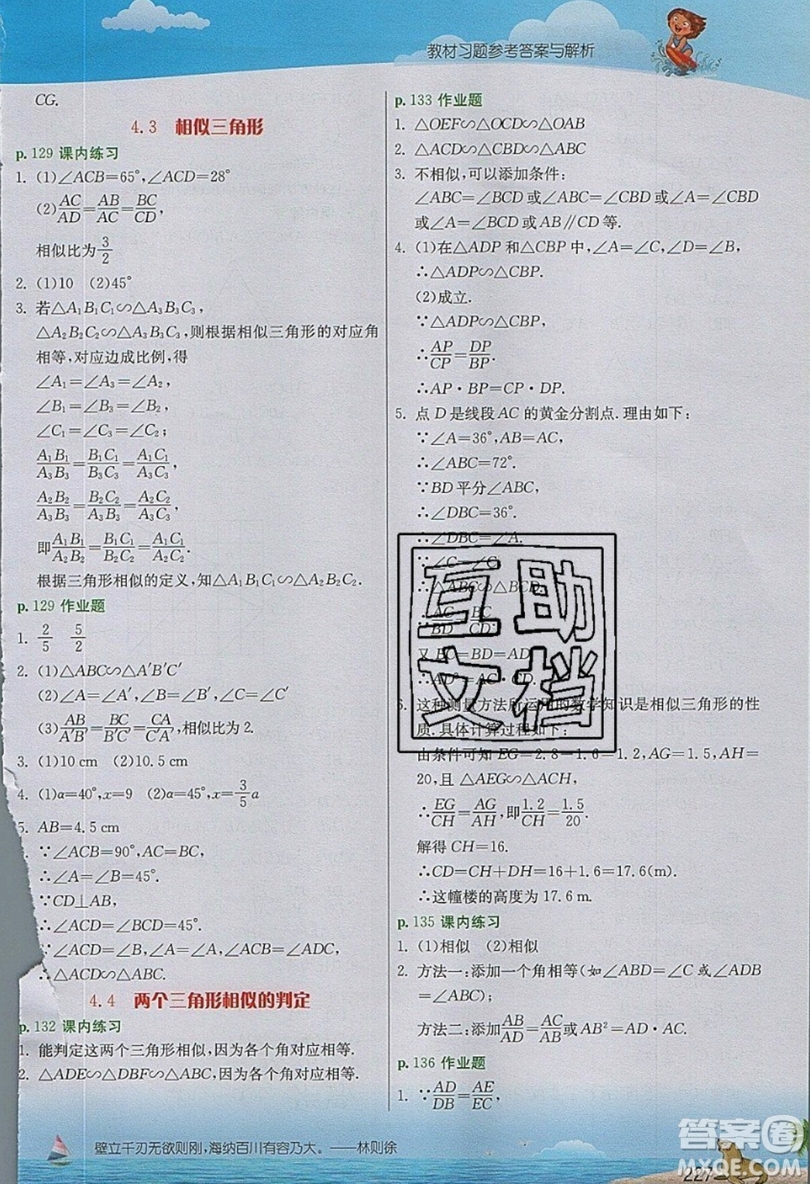 教材习题参考答案与解析
CG.
4.3 相似三角形
p.129 课内练习
1. (1)∠ACB=65°,∠ACD=28°
(2)AC/AD=AB/AC=BC/CD,
相似比为3/2
2. (1)10 (2)45°
3. 若△A₁B₁C₁∽△A₃B₃C₃,
△A₂B₂C₂∽△A₃B₃C₃,则根据相似三角形的对应角
相等,对应边成比例,得
∠A₁=∠A₃=∠A₂,
∠B₁=∠B₃=∠B₂,
∠C₁=∠C₃=∠C₂;
A₁B₁/A₃B₃=B₁C₁/B₃C₃=A₁C₁/A₃C₃,
A₂B₂/A₃B₃=B₂C₂/B₃C₃=A₂C₂/A₃C₃,
即A₁B₁/A₂B₂=B₁C₁/B₂C₂=A₁C₁/A₂C₂.
根据三角形相似的定义,知△A₁B₁C₁∽△A₂B₂C₂.
p.129 作业题
1. 2/5 5/2
2. (1)△ABC∽△A′B′C′
(2)∠A=∠A′,∠B=∠B′,∠C=∠C′
(3)AB/A′B′=BC/B′C′=CA/C′A′,相似比为2.
3. (1)10 cm (2)10.5 cm
4. (1)α=40°,x=9 (2)α=45°,x=3/5a
5. AB=4.5 cm
∵∠ACB=90°,AC=BC,
∴∠A=∠B=45°.
∵CD⊥AB,
∴∠ACD=∠BCD=45°.
∴∠ACD=∠B,∠A=∠A,∠ACB=∠ADC,
∴△ACD∽△ABC.
4.4 两个三角形相似的判定
p.132 课内练习
1. 能判定这两个三角形相似,因为各个角对应相等.
2. △ADE∽△DBF∽△ABC,因为各个角对应相等.
p.133 作业题
1. △OEF∽△OCD∽△OAB
2. △ACD∽△CBD∽△ABC
3. 不相似,可以添加条件:
∠ABC=∠BCD或∠ABC=∠CBD或∠A=∠CBD
或∠A=∠BCD或AB∥CD等.
4. (1)在△ADP和△CBP中,∠A=∠C,∠D=∠B,
∴△ADP∽△CBP.
(2)成立.
∵△ADP∽△CBP,
∴AP/CP=DP/BP.
∴AP·BP=CP·DP.
5. 点D是线段AC的黄金分割点.理由如下:
∵∠A=36°,AB=AC,
∴∠ABC=72°.
∵BD平分∠ABC,
∴∠DBC=36°.
∴∠DBC=∠A.
∵∠C=∠C
∴△ABC∽△BCD.
∴AC/BD=BC/CD.
又BC=BD=AD
∴AD²=AC·CD.
6. 这种测量方法所运用的数学知识是相似三角形的性
质.具体计算过程如下:
由条件可知EG=2.8-1.6=1.2,AG=1.5,AH=
20,且△AEG∽△ACH,
∴EG/CH=AG/AH,即1.2/CH=1.5/20.
解得CH=16.
∴CD=CH+DH=16+1.6=17.6(m).
∴这幢楼的高度为17.6 m.
p.135 课内练习
1. (1)相似 (2)相似
2. 方法一:添加一个角相等(如∠ABD=∠C或∠ADB
=∠ABC).
方法二:添加AB/AD=AC/AB或AB²=AD·AC.
p.136 作业题
1. ∵AD/DB=AE/EC,
壁立千刃无欲则刚,海纳百川有容乃大。——林则徐
227
互助
文档
答案圈
MXQE.COM